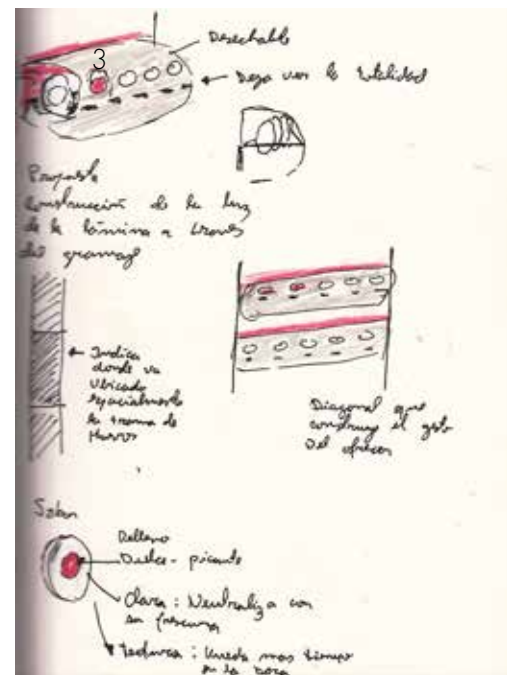 3
Desechable
Deja ver la totalidad
Propuesta
Construcción de la luz
de la lámina a traves
del gramage
Indica
donde va
Ubicado
espacialmente
la trama de
Huevos
Diagonal que
construye el gesto
Del ofrecer
Sabor
Relleno
Dulce - picante
Clara : Neutraliza con
su frescura
textura : Queda mas tiempo
en la boca